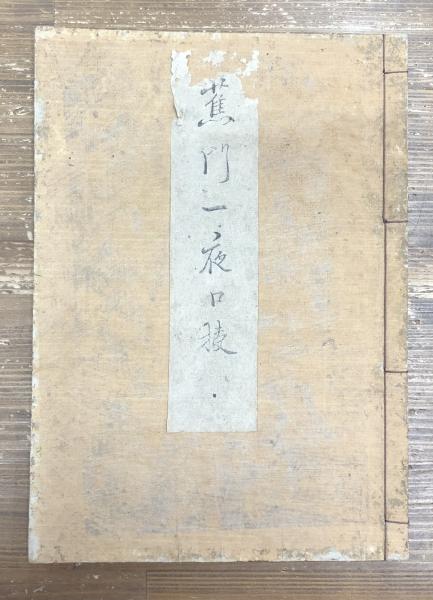 蕉門一夜口稜